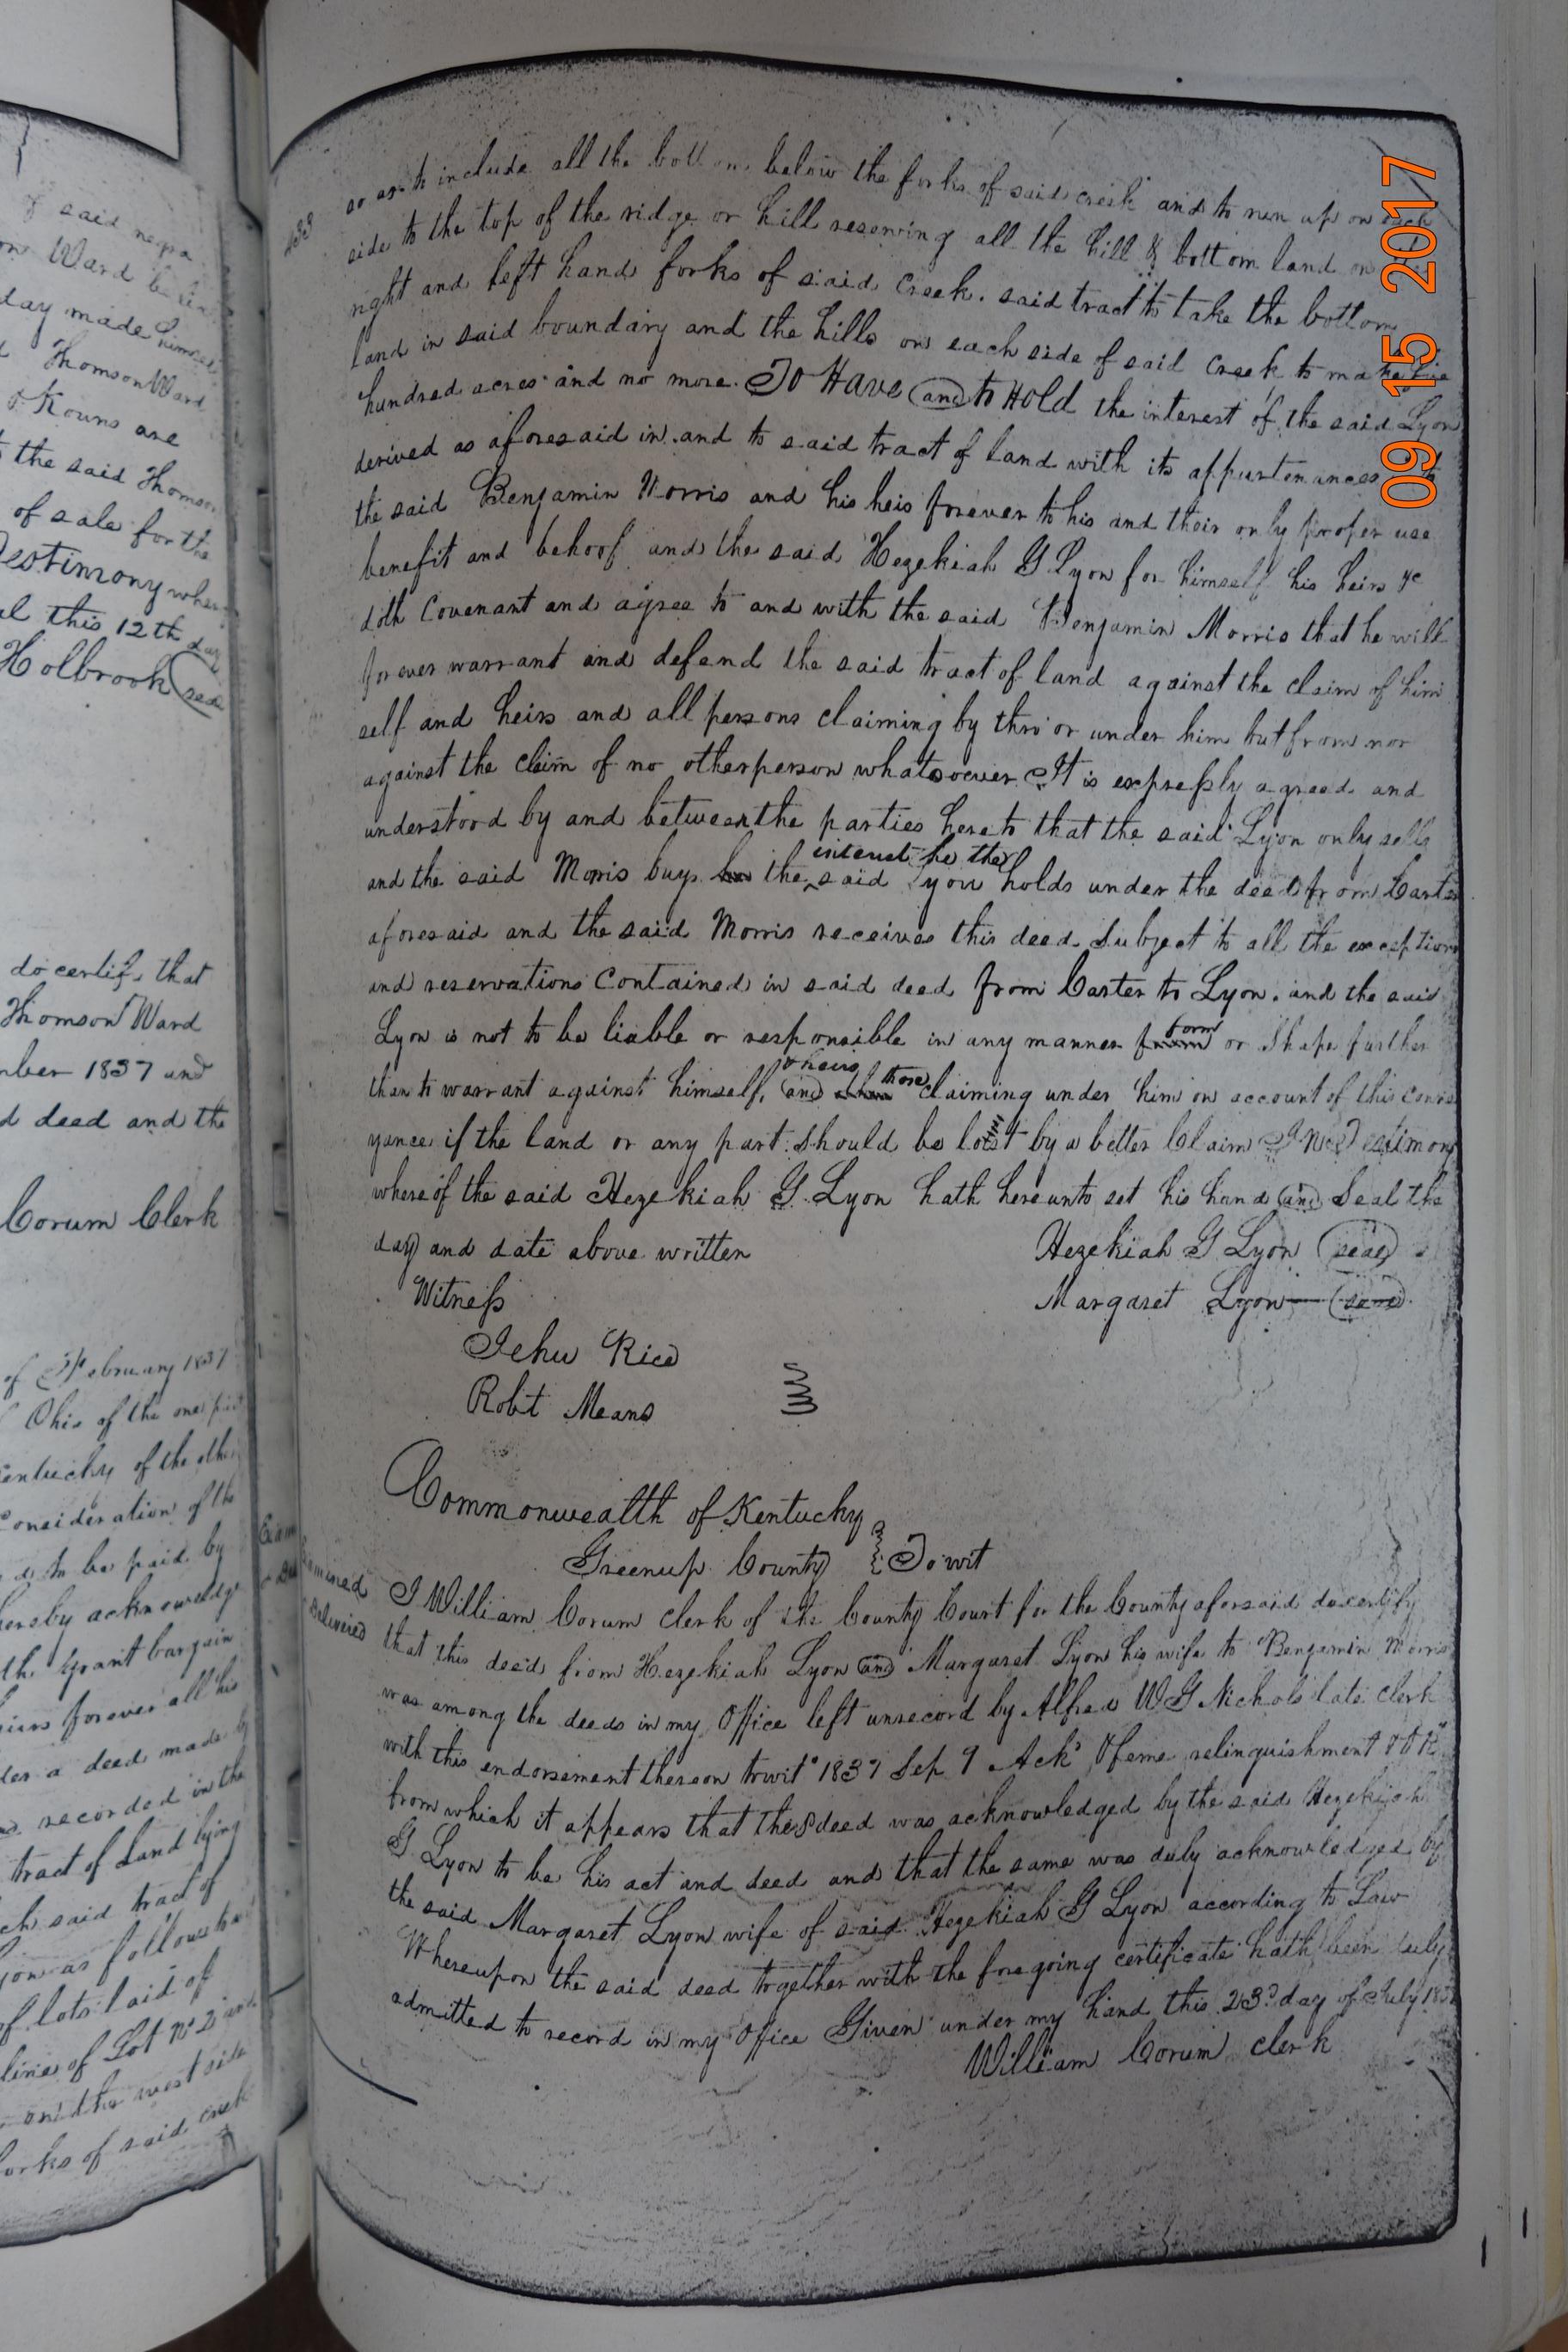 of said negro
on Ward
day made himself
Thomson Ward
& Kouns are
the said Thomson
of sale for the
Testimony where
this 12th day
Holbrook (seal
do certify that
Thomson Ward
1837 and
deed and the
Corum Clerk
of February 1837
Ohio of the one part
Kentucky of the other
Consideration of the
to be paid by
hereby acknowledge
grant bargain
heirs forever all his
a deed made by
recorded in the
tract of Land lying
said tract of
as follows to
of lots laid of
line of Lot No 2 and
on the west side
forks of said creek
433
so as to include all the bottom below the forks of said creek and to run up on each
side to the top of the ridge or hill reserving all the hill & bottom land on
right and left hand forks of said Creek. said tract to take the bottom
land in said boundary and the hills on each side of said Creek to make five
hundred acres and no more. To Have and to Hold the interest of the said Lyon
derived as aforesaid in and to said tract of land with its appurtenances to
the said Benjamin Morris and his heis forever to his and their only proper use
benefit and behoof and the said Hezekiah G Lyon for himself his heirs &c
doth Covenant and agree to and with the said Benjamin Morris that he will
forever warrant and defend the said tract of land against the claim of him
self and heirs and all persons claiming by thro or under him but from nor
against the claim of no other person whatsoever It is expressly agreed and
understood by and between the parties hereto that the said Lyon only sells
interest he the
and the said Morris buys the said Lyon holds under the deed from Carter
aforesaid and the said Morris receives this deed Subject to all the exceptions
and reservations Contained in said deed from Carter to Lyon. and the said
form
Lyon is not to be liable or responsible in any manner or Shape further
& heirs those
than to warrant against himself, and claiming under him on account of this conve
yance if the land or any part should be lost by a better Claim In Testimony
whereof the said Hezekiah G. Lyon hath hereunto set his hand and Seal the
day and date above written Hezekiah G Lyon (seal)
Witness Margaret Lyon (seal)
Jehu Rice
Robt Means
Commonwealth of Kentucky
Greenup County } To wit
Examined
Delivered
I William Corum clerk of the County Court for the County aforsaid do certify
that this deed from Hezekiah Lyon and Margaret Lyon his wife to Benjamin Morris
was among the deeds in my Office left unrecord by Alfred W G Nichols late clerk
with this endorsement thereon towit "1837 Sep 9 Ackd & feme relinquishment & O R"
from which it appears that the deed was acknowledged by the said Hezekiah
G Lyon to be his act and deed and that the same was duly acknowledged by
the said Margaret Lyon wife of said Hezekiah G Lyon according to Law
Whereupon the said deed together with the foregoing certificate hath been duly
admitted to record in my Office Given under my hand this 23d day of July
William Corum clerk
09 15 2017